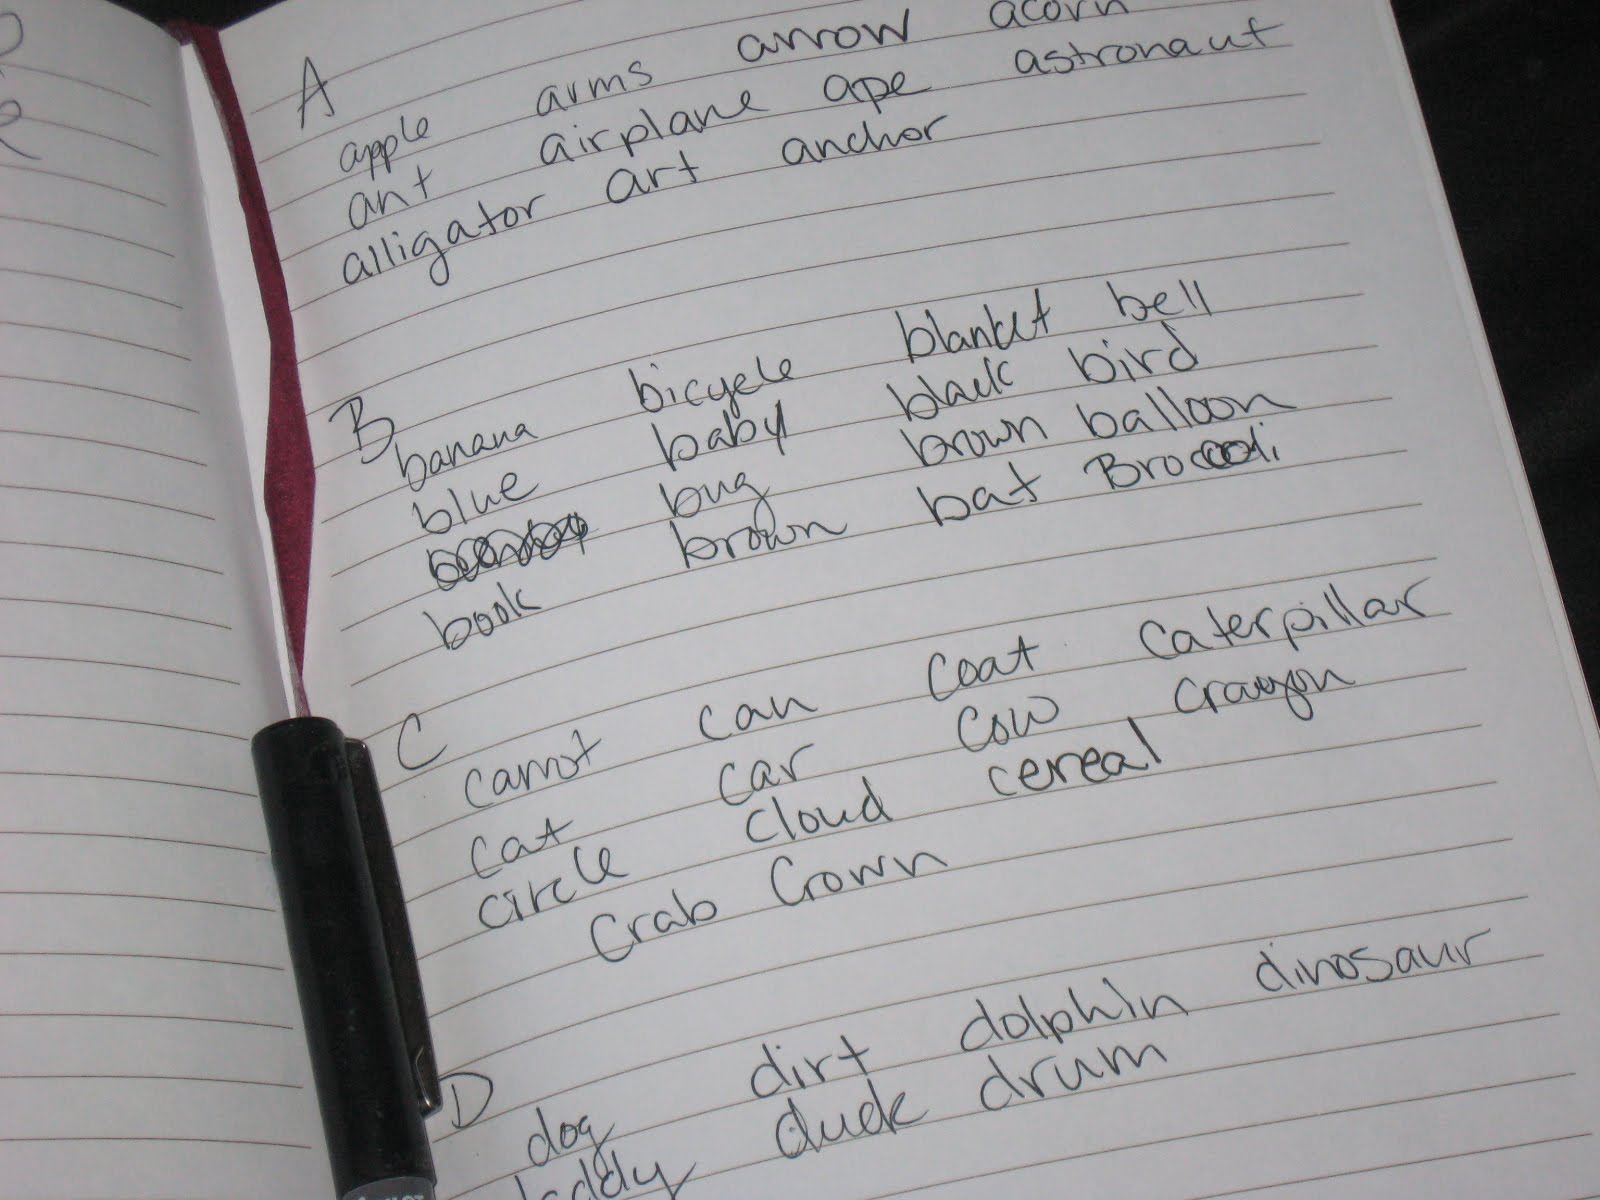 A
apple arms arrow acorn
ant airplane ape astronaut
alligator art anchor
B
banana bicycle blanket bell
blue baby black bird
bug brown balloon
book brown bat Broccoli
C
carrot can coat caterpillar
cat car cow crayon
circle cloud cereal
Crab Crown
D
dog dirt dolphin dinosaur
duck drum